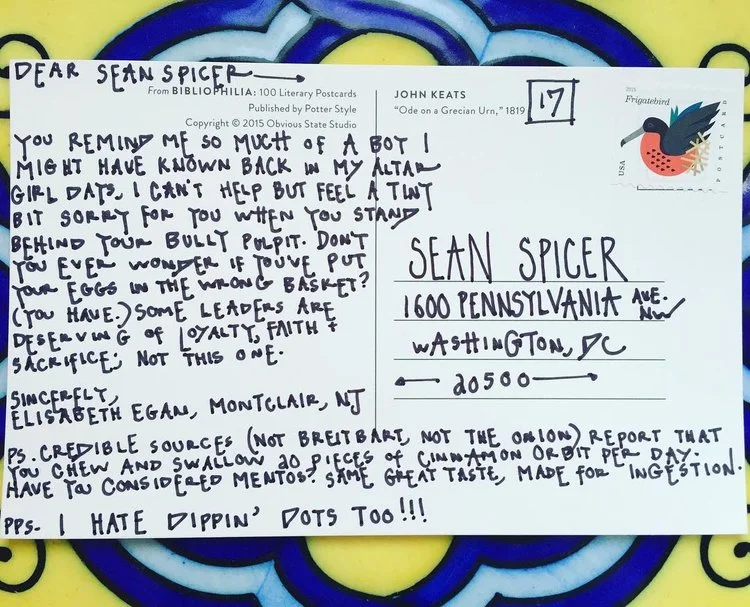 DEAR SEAN SPICER
From BIBLIOPHILIA: 100 Literary Postcards
Published by Potter Style
Copyright © 2015 Obvious State Studio
YOU REMIND ME SO MUCH OF A BOY I
MIGHT HAVE KNOWN BACK IN MY ALTAR
GIRL DAYS, I CAN'T HELP BUT FEEL A TINY
BIT SORRY FOR YOU WHEN YOU STAND
BEHIND YOUR BULLY PULPIT. DON'T
YOU EVER WONDER IF YOU'VE PUT
YOUR EGGS IN THE WRONG BASKET?
(YOU HAVE.) SOME LEADERS ARE
DESERVING OF LOYALTY, FAITH +
SACRIFICE; NOT THIS ONE.
SINCERELY,
ELISABETH EGAN, MONTCLAIR, NJ
PS. CREDIBLE SOURCES (NOT BREITBART, NOT THE ONION) REPORT THAT
YOU CHEW AND SWALLOW 20 PIECES OF CINNAMON ORBIT PER DAY.
HAVE YOU CONSIDERED MENTOS? SAME GREAT TASTE, MADE FOR INGESTION.
PPS. I HATE DIPPIN' DOTS TOO!!!
JOHN KEATS
"Ode on a Grecian Urn," 1819
17
2015
Frigatebird
USA
POSTCARD
SEAN SPICER
1600 PENNSYLVANIA AVE.
NW
WASHINGTON, DC
20500